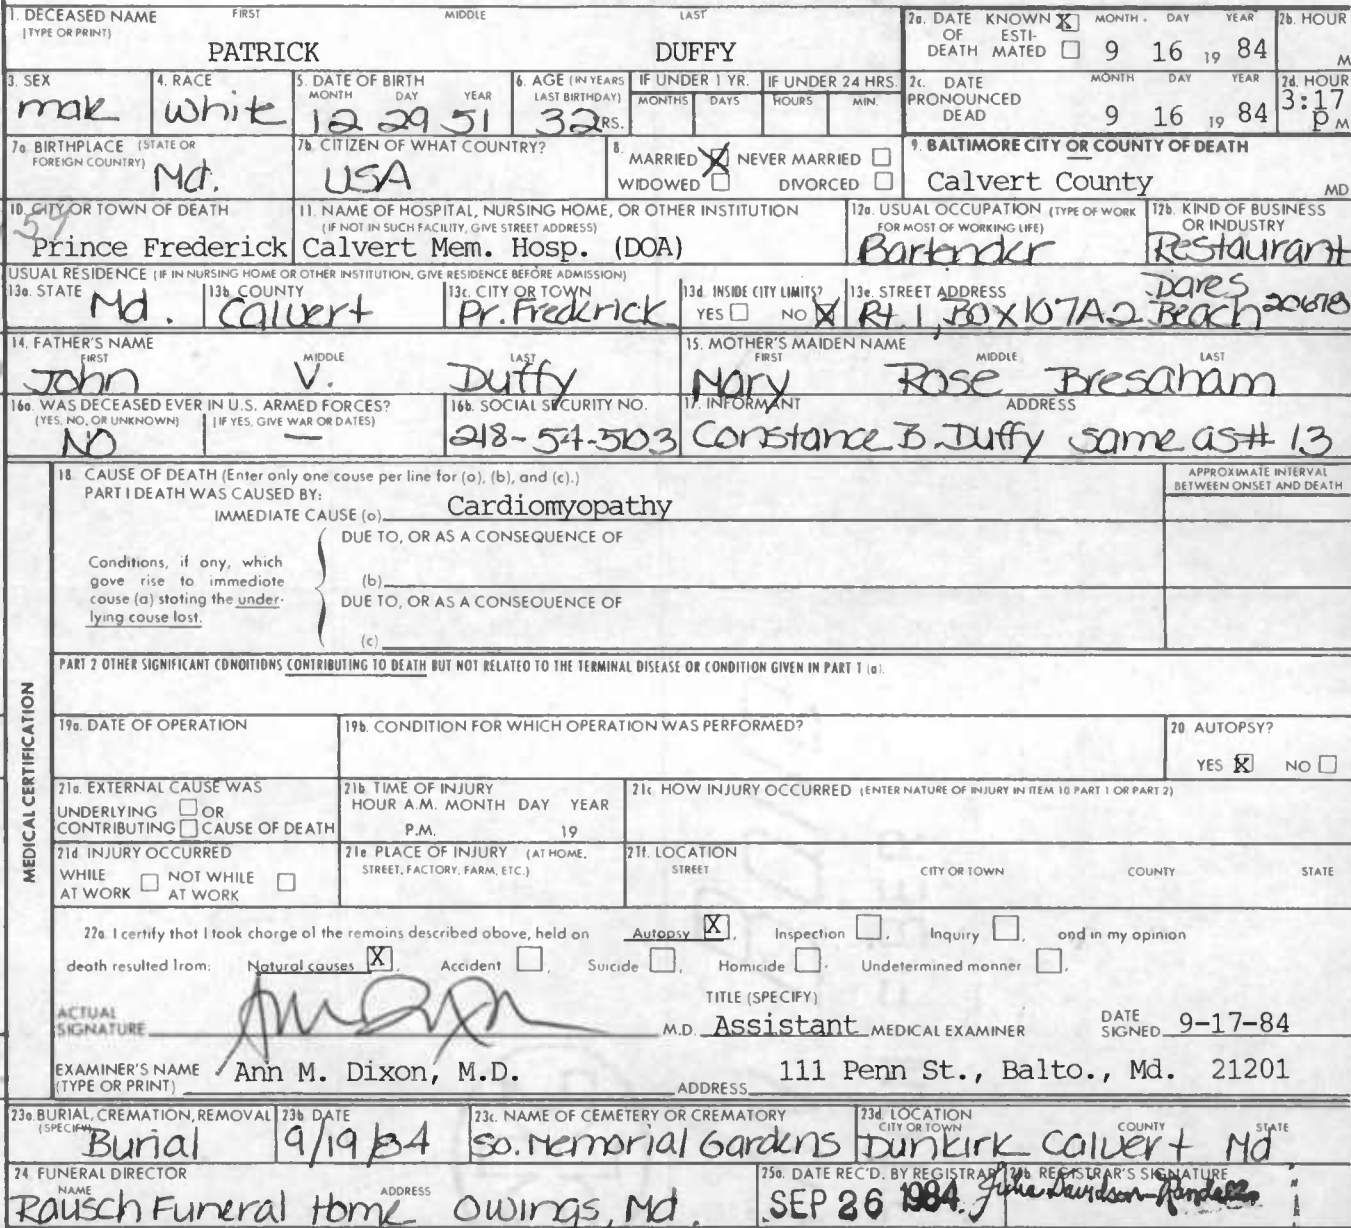 1. DECEASED NAME FIRST MIDDLE LAST
(TYPE OR PRINT)
PATRICK DUFFY
2a. DATE KNOWN X MONTH DAY YEAR
OF ESTI-
DEATH MATED 9 16 19 84
2b. HOUR
M
3. SEX
male
4. RACE
white
5. DATE OF BIRTH
MONTH DAY YEAR
12 29 51
6. AGE (IN YEARS
LAST BIRTHDAY)
32 RS.
IF UNDER 1 YR.
MONTHS DAYS
IF UNDER 24 HRS.
HOURS MIN.
2c. DATE MONTH DAY YEAR
PRONOUNCED
DEAD 9 16 19 84
2d. HOUR
3:17
P M
7a BIRTHPLACE (STATE OR
FOREIGN COUNTRY)
Md.
7b. CITIZEN OF WHAT COUNTRY?
USA
8.
MARRIED X NEVER MARRIED
WIDOWED DIVORCED
9. BALTIMORE CITY OR COUNTY OF DEATH
Calvert County MD
10. CITY OR TOWN OF DEATH
Prince Frederick
11. NAME OF HOSPITAL, NURSING HOME, OR OTHER INSTITUTION
(IF NOT IN SUCH FACILITY, GIVE STREET ADDRESS)
Calvert Mem. Hosp. (DOA)
12a. USUAL OCCUPATION (TYPE OF WORK
FOR MOST OF WORKING LIFE)
Bartender
12b. KIND OF BUSINESS
OR INDUSTRY
Restaurant
USUAL RESIDENCE (IF IN NURSING HOME OR OTHER INSTITUTION, GIVE RESIDENCE BEFORE ADMISSION)
13a. STATE
Md.
13b. COUNTY
Calvert
13c. CITY OR TOWN
Pr. Frederick
13d. INSIDE CITY LIMITS?
YES NO X
13e. STREET ADDRESS
Rt. 1, Box 107A2 Dares Beach 20678
14. FATHER'S NAME
FIRST MIDDLE LAST
John V. Duffy
15. MOTHER'S MAIDEN NAME
FIRST MIDDLE LAST
Mary Rose Bresnaham
16a. WAS DECEASED EVER IN U.S. ARMED FORCES?
(YES, NO, OR UNKNOWN) (IF YES, GIVE WAR OR DATES)
NO —
16b. SOCIAL SECURITY NO.
218-54-5103
17. INFORMANT ADDRESS
Constance B. Duffy same as # 13
MEDICAL CERTIFICATION
18. CAUSE OF DEATH (Enter only one couse per line for (a), (b), and (c).)
PART I DEATH WAS CAUSED BY:
IMMEDIATE CAUSE (a) Cardiomyopathy
APPROXIMATE INTERVAL
BETWEEN ONSET AND DEATH
DUE TO, OR AS A CONSEQUENCE OF
Conditions, if any, which
gave rise to immediate
cause (a) stating the under-
lying couse last.
(b)
DUE TO, OR AS A CONSEQUENCE OF
(c)
PART 2 OTHER SIGNIFICANT CONDITIONS CONTRIBUTING TO DEATH BUT NOT RELATED TO THE TERMINAL DISEASE OR CONDITION GIVEN IN PART 1 (a).
19a. DATE OF OPERATION
19b. CONDITION FOR WHICH OPERATION WAS PERFORMED?
20 AUTOPSY?
YES X NO
21a. EXTERNAL CAUSE WAS
UNDERLYING OR
CONTRIBUTING CAUSE OF DEATH
21b TIME OF INJURY
HOUR A.M. MONTH DAY YEAR
P.M. 19
21c HOW INJURY OCCURRED (ENTER NATURE OF INJURY IN ITEM 10 PART 1 OR PART 2)
21d INJURY OCCURRED
WHILE NOT WHILE
AT WORK AT WORK
21e PLACE OF INJURY (AT HOME,
STREET, FACTORY, FARM, ETC.)
21f. LOCATION
STREET CITY OR TOWN COUNTY STATE
22a I certify that I took charge of the remains described above, held on Autopsy X, Inspection, Inquiry, and in my opinion
death resulted from: Natural causes X, Accident, Suicide, Homicide, Undetermined manner.
ACTUAL
SIGNATURE
TITLE (SPECIFY)
M.D. Assistant MEDICAL EXAMINER
DATE
SIGNED 9-17-84
EXAMINER'S NAME
(TYPE OR PRINT) Ann M. Dixon, M.D.
ADDRESS 111 Penn St., Balto., Md. 21201
23a. BURIAL, CREMATION, REMOVAL
(SPECIFY)
Burial
23b DATE
9/19/84
23c. NAME OF CEMETERY OR CREMATORY
So. Memorial Gardens
23d. LOCATION
CITY OR TOWN COUNTY STATE
Dunkirk Calvert Md
24. FUNERAL DIRECTOR
NAME ADDRESS
Rausch Funeral Home Owings, Md.
25a. DATE REC'D. BY REGISTRAR
SEP 26 1984
25b REGISTRAR'S SIGNATURE
Julia Davidson-Randall